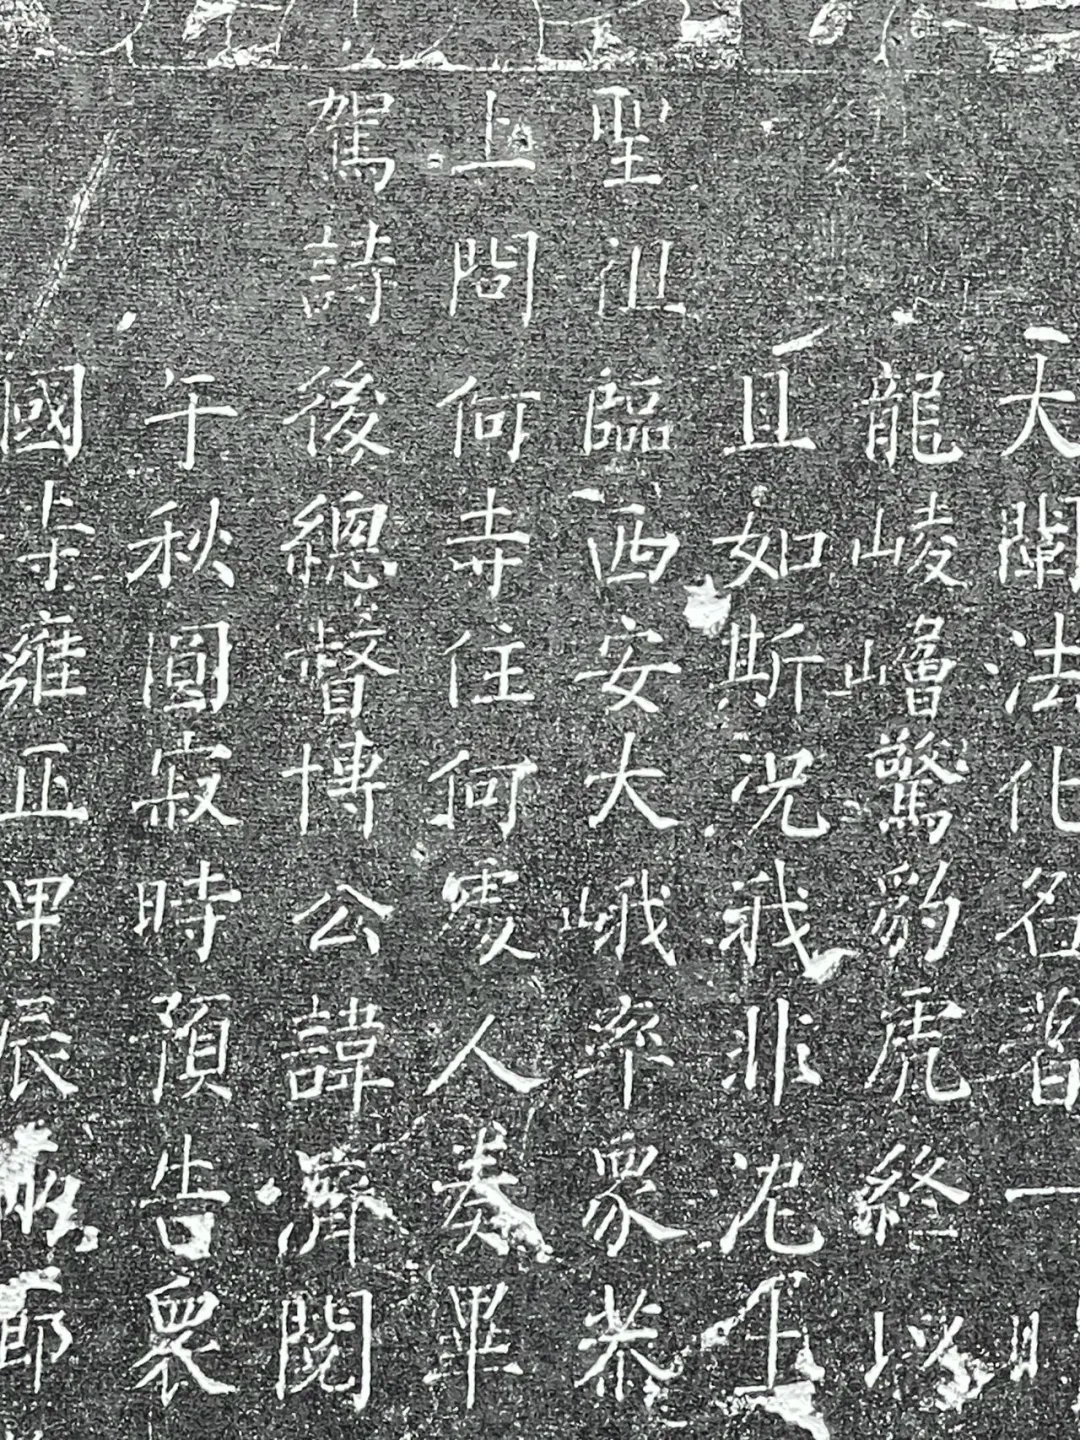 天闡法化往普一以
龍崚嶒驚豹虎終以
且如斯況我非凡
聖祖臨西安大峨率眾恭
上問何寺住何處人奏畢
駕詩後總督博公諱濟閱
午秋圓寂時預告眾
國寺雍正甲辰 郎